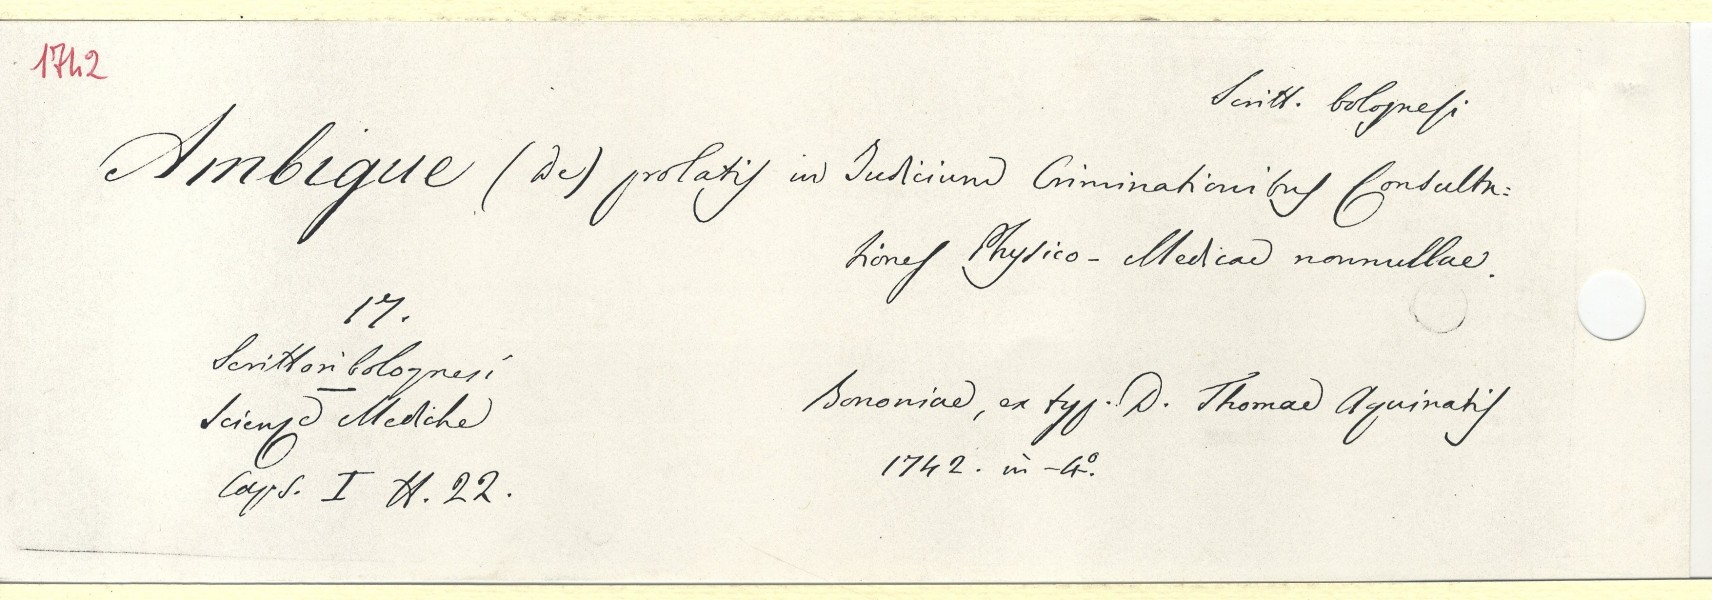 1742
Scritt. bolognesi
Ambigue (de) prolatis in Judicium Criminationibus Consulta=
tiones Physico-Medicae nonnullae.
17.
Scrittori bolognesi
Scienze Mediche
Caps. I H. 22.
Bononiae, ex typ. D. Thomae Aquinatis
1742. in-4º.